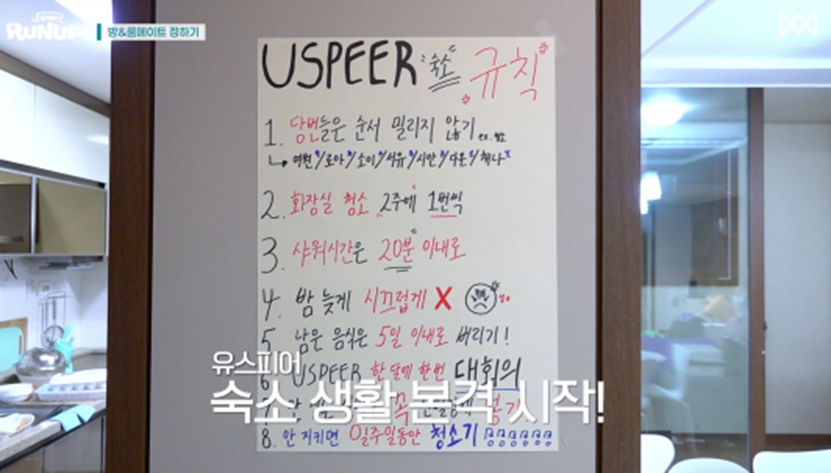 RUNUP!
방&룸메이트 정하기
USPEER 숙소 규칙
1. 당번들은 순서 밀리지 않기
↳ 여원/로아/소이/서유/시안/다온/채나
2. 화장실 청소 2주에 1번씩
3. 샤워시간은 20분 이내로
4. 밤 늦게 시끄럽게 X
5. 남은 음식은 5일 이내로 버리기!
6. USPEER 한 달에 한번 대회의
8. 안 지키면 일주일동안 청소기
유스피어
숙소 생활 본격 시작!